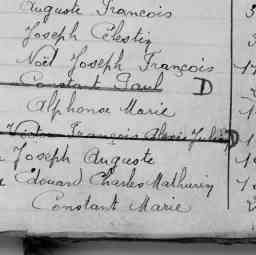 Auguste François
Joseph Célestin
Noël Joseph François
Constant Paul D
Alphonse Marie
Victor François Alexis Julien D
Joseph Auguste
Edouard Charles Mathurin
Constant Marie